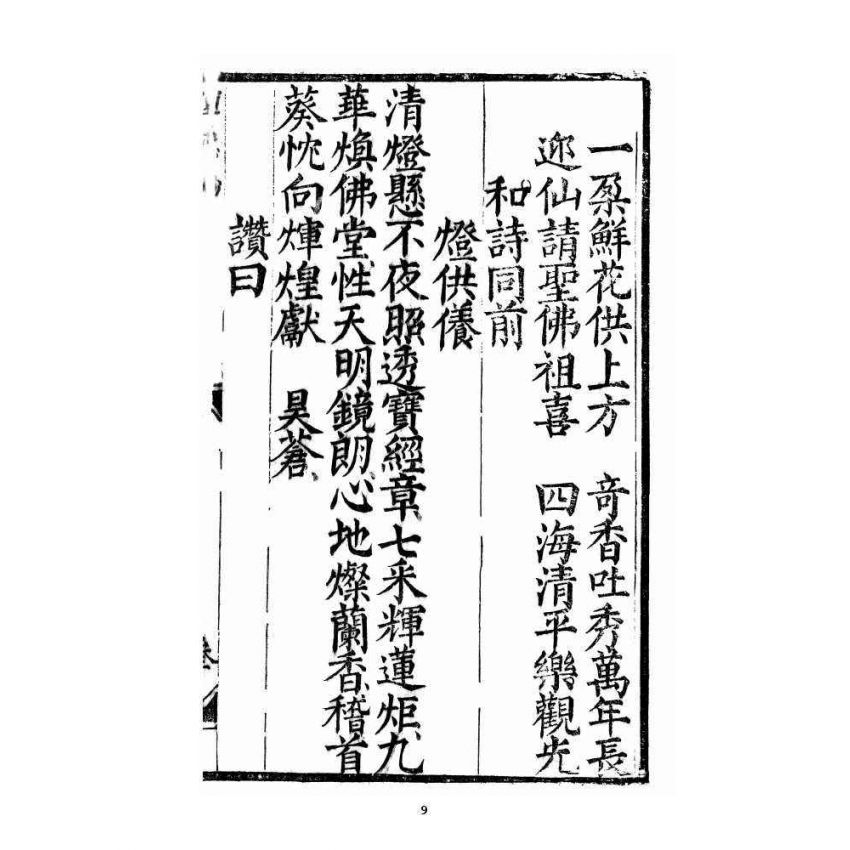 一朶鮮花供上方　竒香吐秀萬年長
迎仙請聖佛祖喜　四海清平樂觀光
和詩同前
燈供儀
清燈懸不夜照透寶經章七采輝蓮炬、九
華煥佛堂、性天明鏡朗、心地燦蘭香、稽首
葵忱向煇煌獻　昊蒼、
讚曰
9